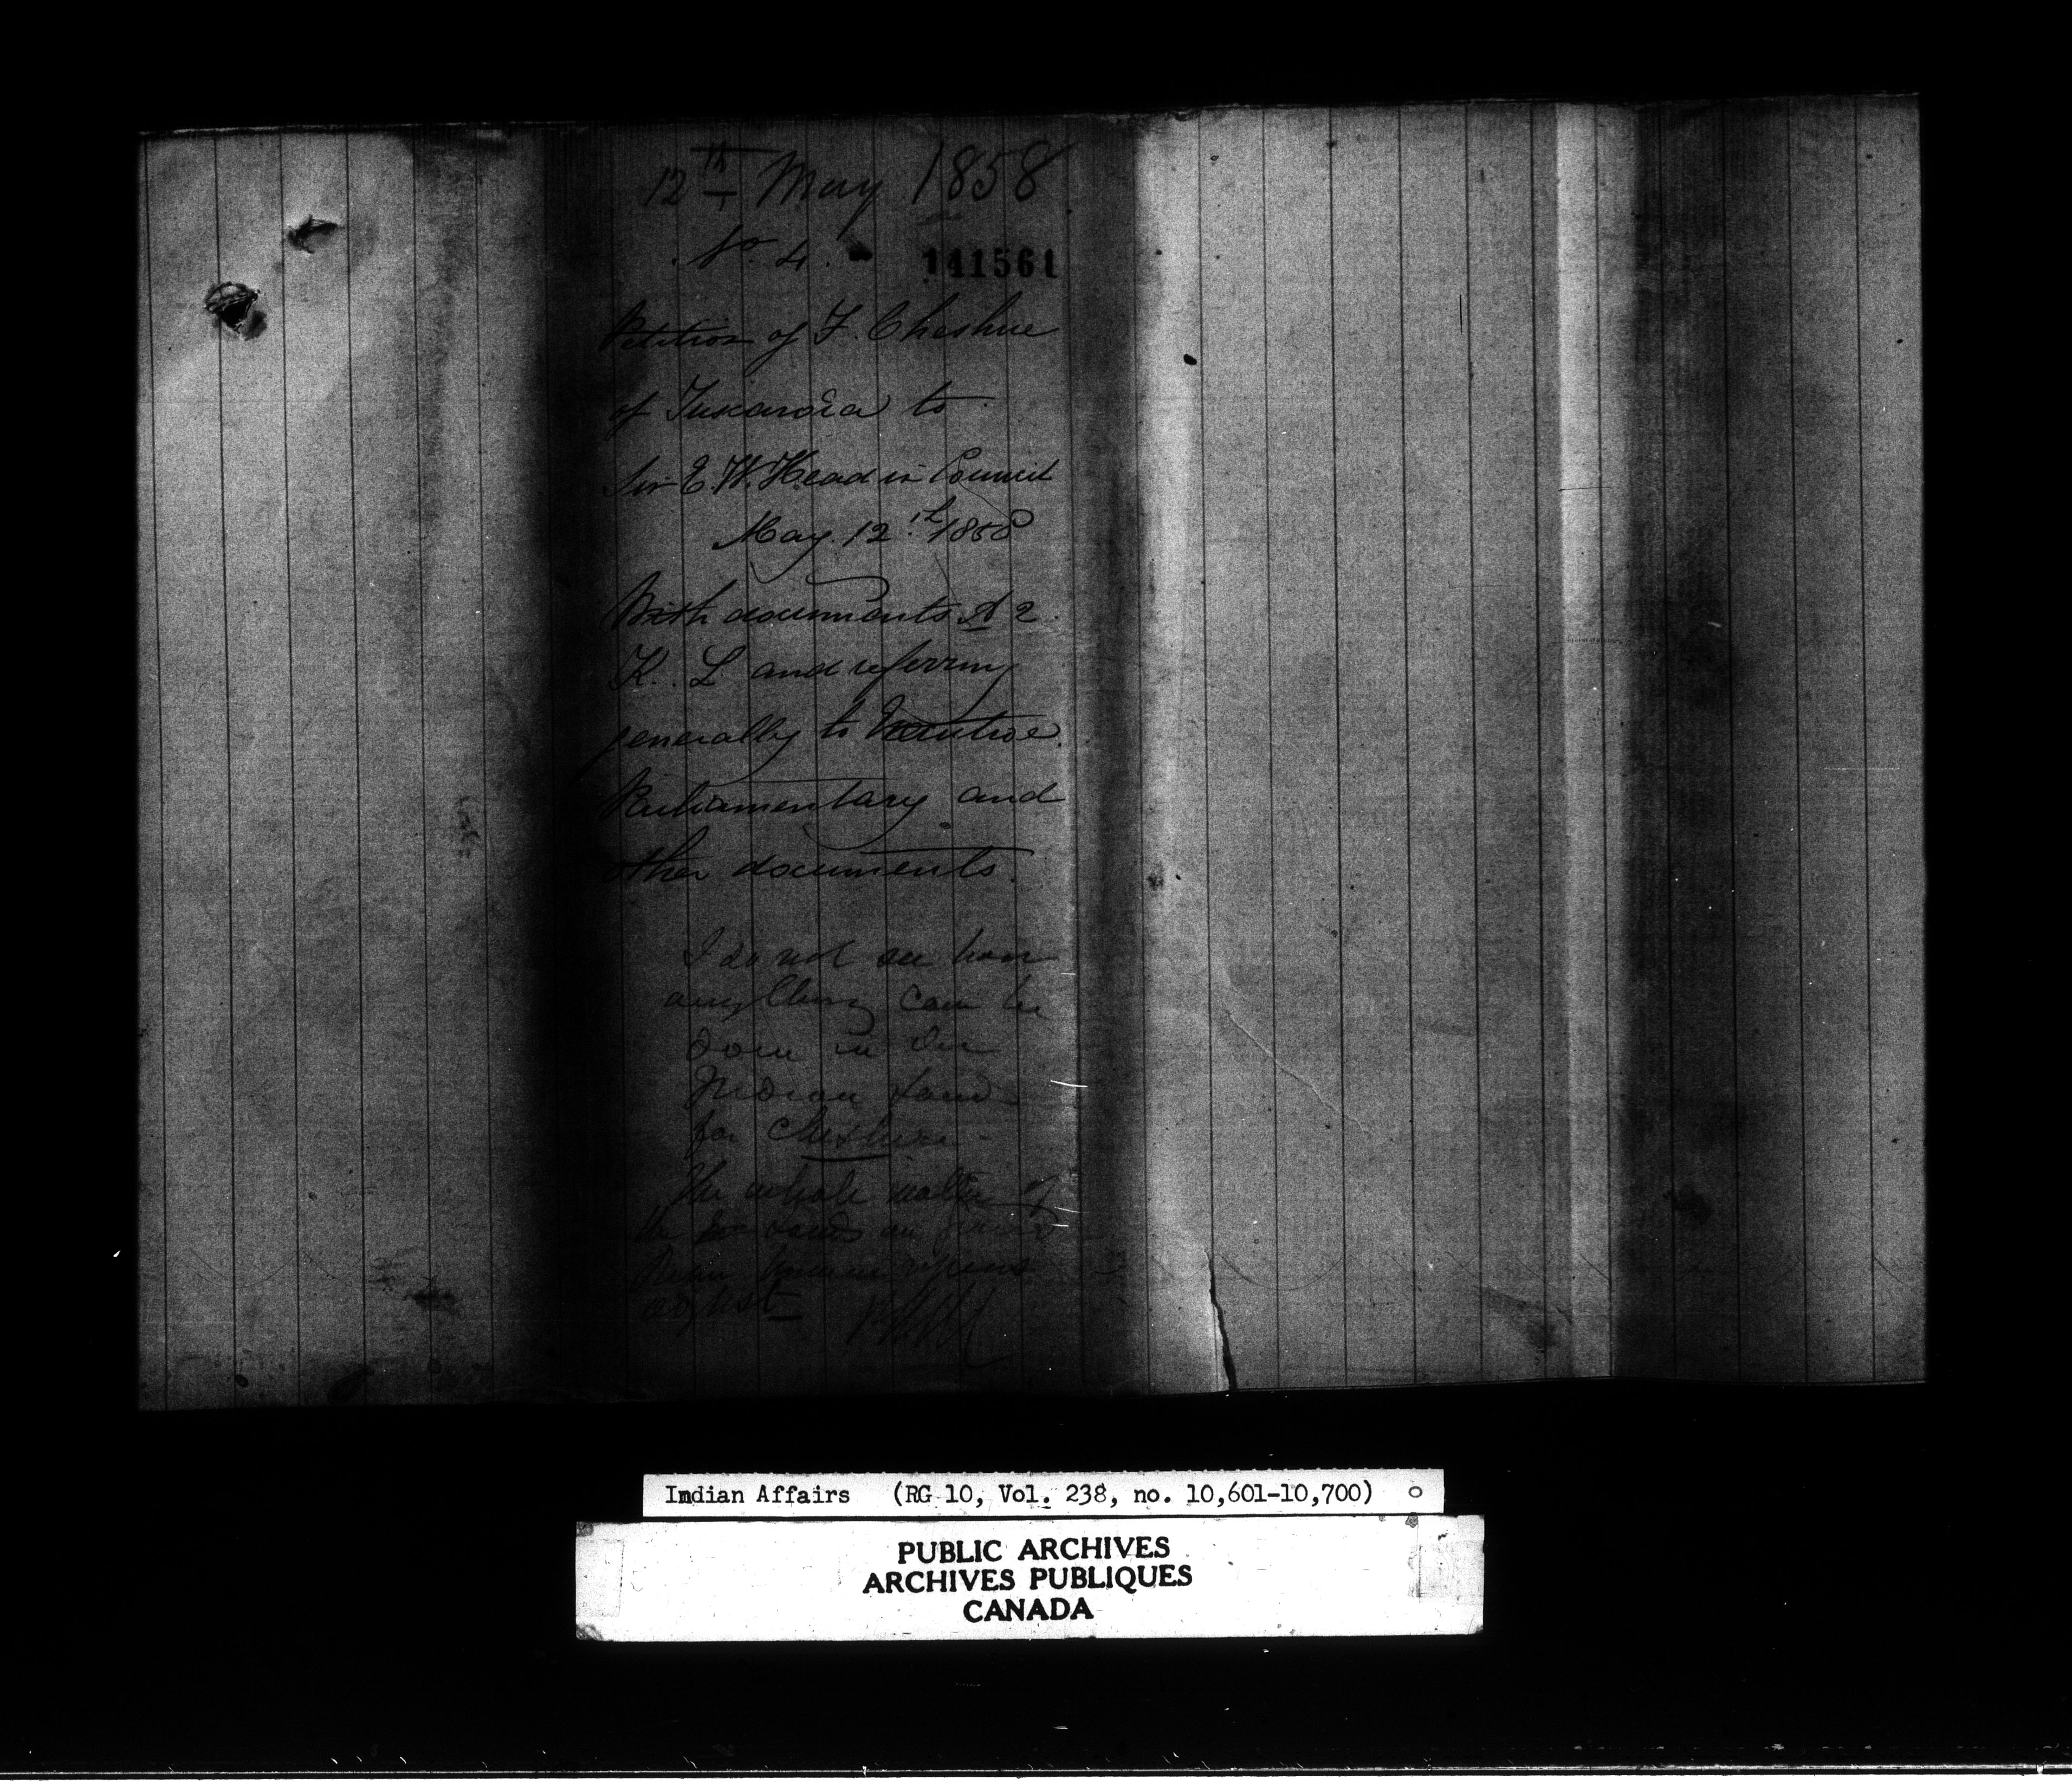 12th May 1858
No. 4. 141561
Petition of F. Cheshire
of Tuscarora to
Sir E. W. Head in Council
May 12th 1858
With documents A 2
K. L and referring
generally to Executive
Parliamentary and
other documents.
I do not see how
anything can be
done in the
Indian Land
for Cheshire -
The whole matter of
the Lands on
adjust
Indian Affairs (RG 10, Vol. 238, no. 10,601-10,700)
PUBLIC ARCHIVES
ARCHIVES PUBLIQUES
CANADA